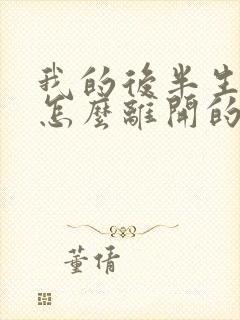 我的後半生
怎麼離開的
董倩